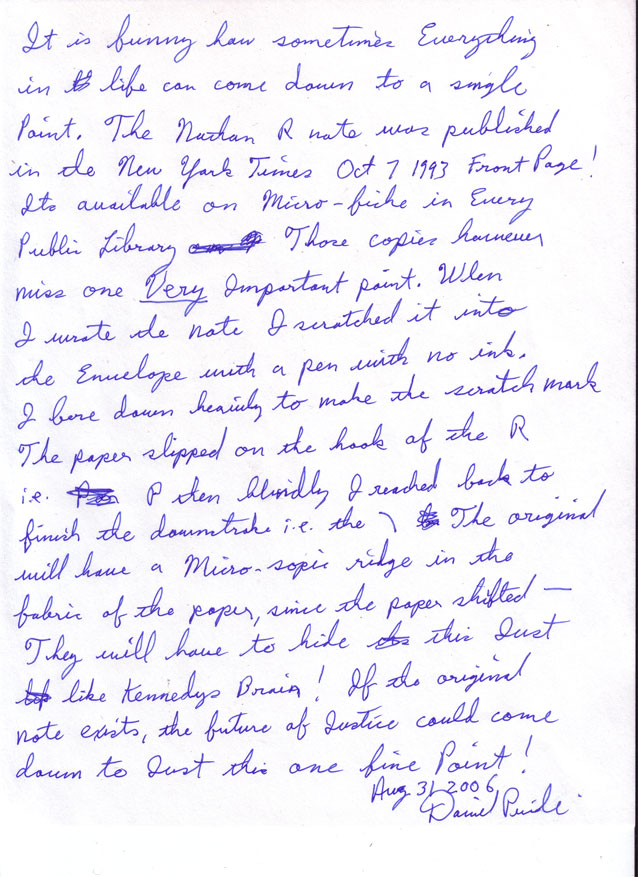 It is funny how sometimes Everything
in life can come down to a single
Point. The Nathan R note was published
in the New York Times Oct 7 1993 Front Page!
Its available on Micro-fiche in Every
Public Library Those copies however
miss one Very Important point. When
I wrote the note I scratched it into
the Envelope with a pen with no ink.
I bore down heavily to make the scratch mark
The paper slipped on the hook of the R
i.e. P then blindly I reached back to
finish the downstroke i.e. the \ The original
will have a Micro-sopic ridge in the
fabric of the paper, since the paper shifted —
They will have to hide this Just
like Kennedys Brain! If the original
note exists, the future of Justice could come
down to Just this one fine Point!
Aug 31 2006
Daniel